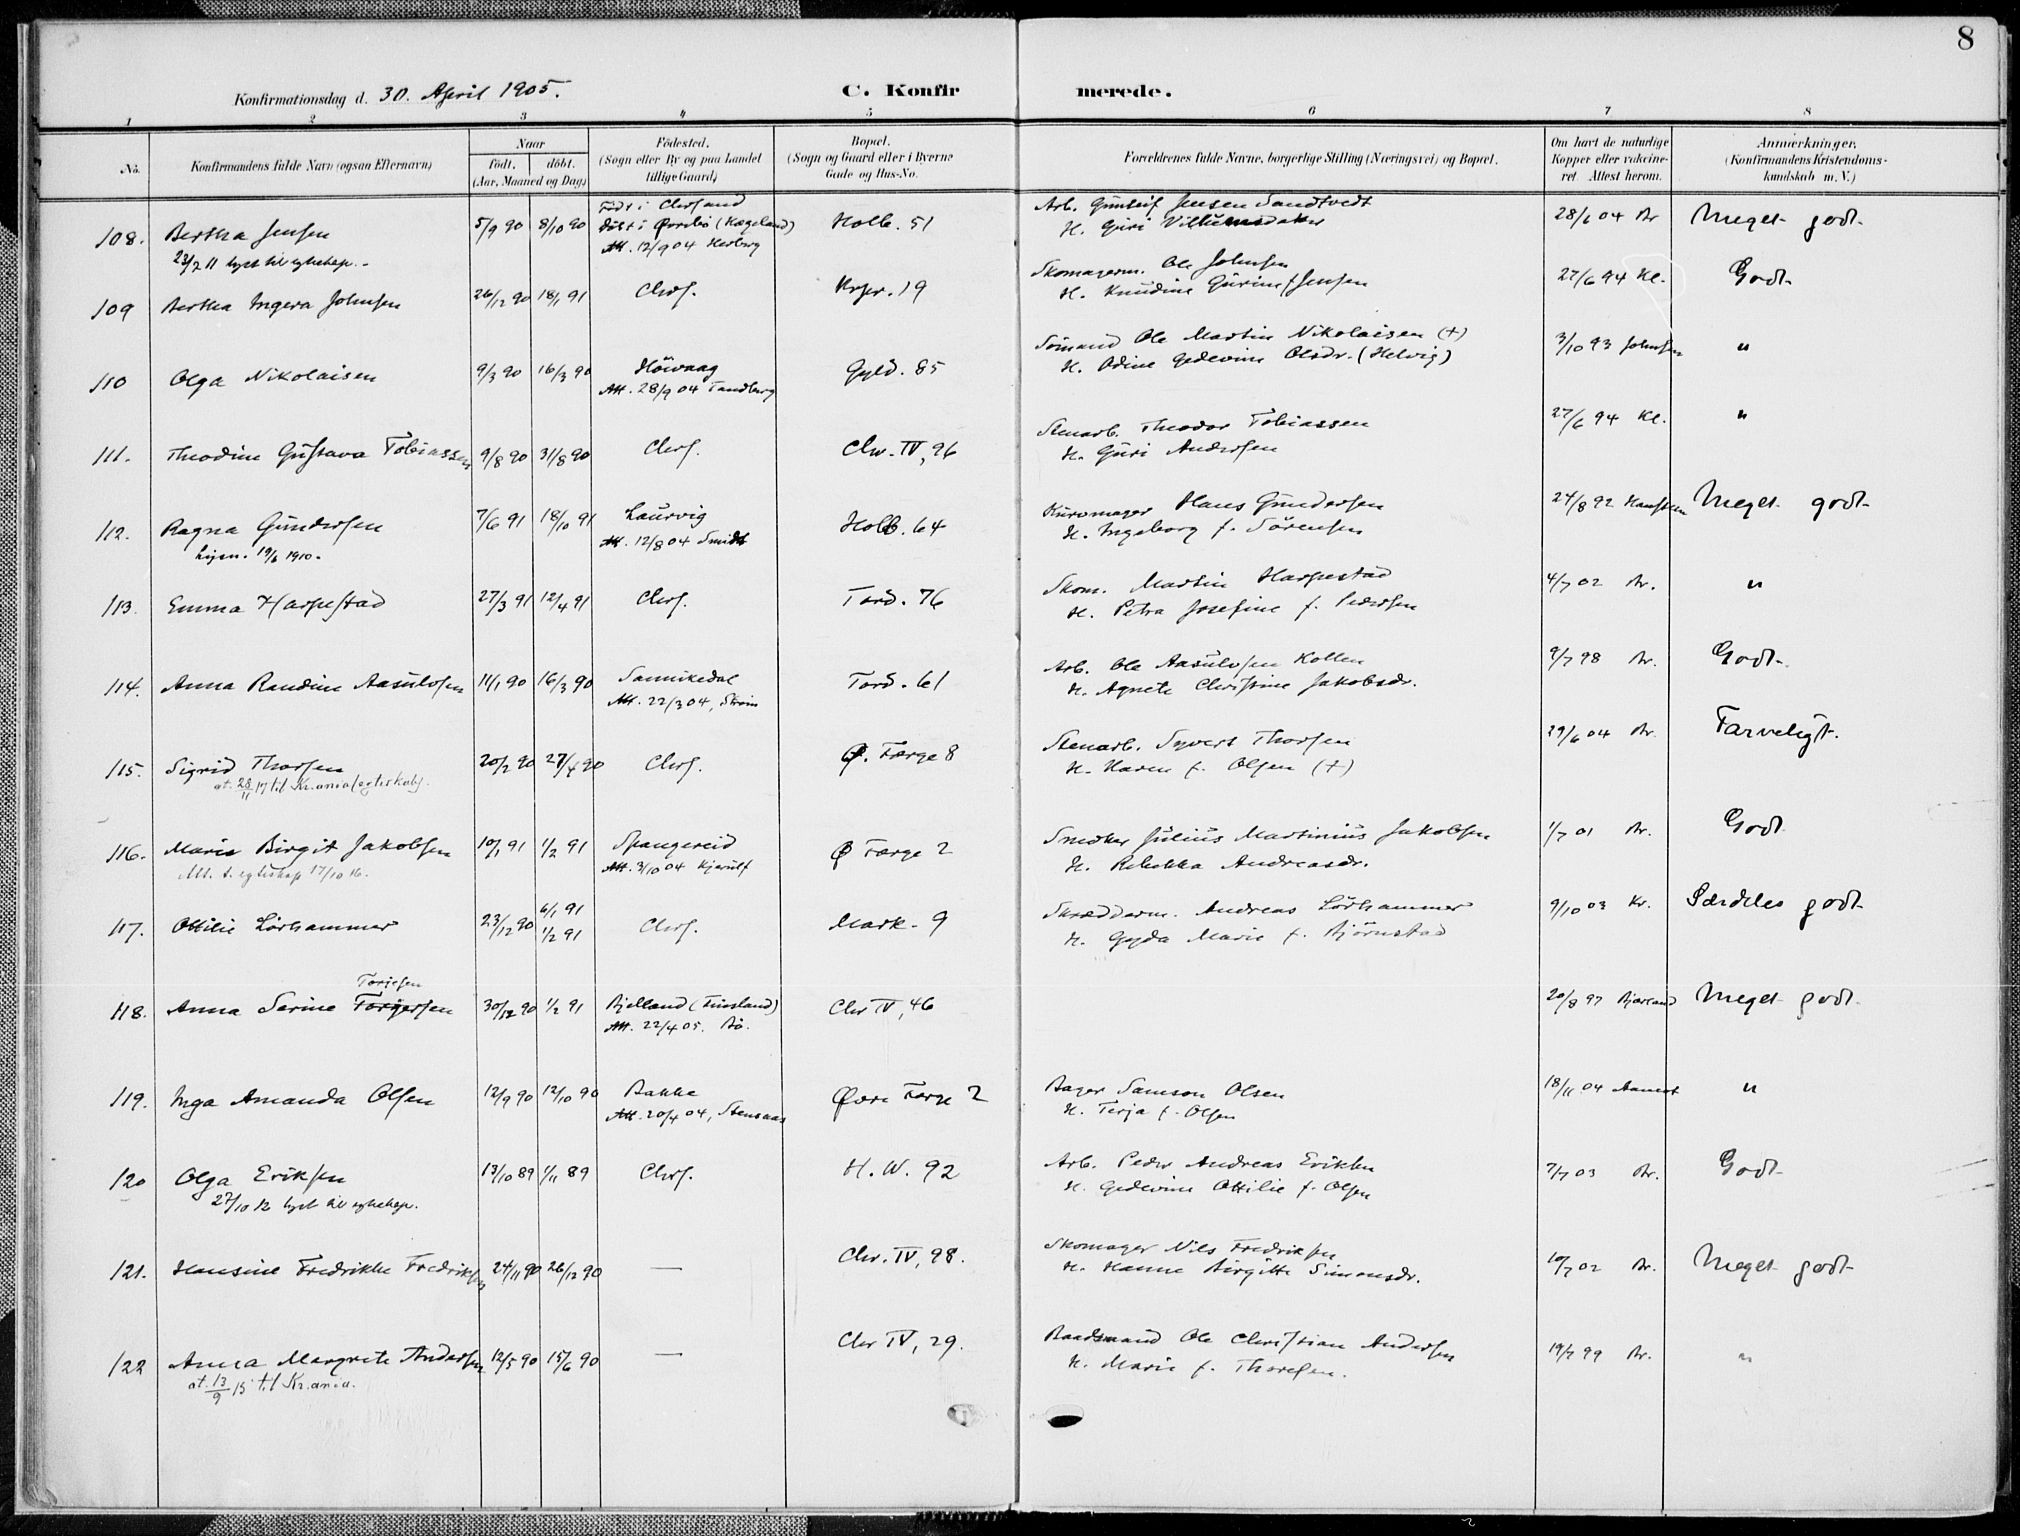 8
Konfirmationsdag d. 30. April 1905.
C. Konfirmerede.
1 2 3 4 5 6 7 8
No.
Konfirmandens fulde Navn (ogsaa Efternavn)
Naar
födt. döbt.
(Aar, Maaned og Dag)
Födested.
(Sogn eller By og paa Landet
tillige Gaard)
Bopæl.
(Sogn og Gaard eller i Byerne
Gade og Hus-No.
Forældrenes fulde Navne, borgerlige Stilling (Næringsvei) og Bopæl.
Om havt de naturlige
Kopper eller vakcine-
ret. Attest herom.
Anmerkninger.
(Konfirmandens Kristendoms-
kundskab m. V.)
108. Bertha Jensen 5/9 90 8/10 90
23/2 11 lyst til egteskap.
Födt i Chrsand
döbt i Øvrebö (Hægeland)
Att. 12/9 04
Holb. 51
Arb. Gunleif Jensen Sandtvedt
H. Guri
28/6 04 Br
Meget godt
109 Bertha Ingera Johnsen 26/12 90 18/1 91 Chrs. Krpr. 19
Skomagerm. Ole Johnsen
H. Knudine Gurine f Jensen
27/6 94 Kl. Godt
110 Olga Nikolaisen 9/3 90 16/3 90
Höivaag
Att. 28/9 04 Tandberg
Gyld. 85
Sömand Ole Martin Nikolaisen (+)
H. Odine Gedevine Olsdr. (Helvig)
3/10 93 Johnsen "
111. Theodine Gustava Tobiassen 9/8 90 31/8 90 Chrs. Chr. IV, 96
Stenarb. Theodor Tobiassen
H. Guri Andersen
27/6 94 Kl. "
112. Ragna Gundersen 7/6 91 18/10 91
19/6 1910.
Laurvig
Att. 12/8 04 Smidt
Holb. 64
Kurvmager Hans Gundersen
H. Ingeborg f. Sörensen
24/8 92
Meget godt
113 Emma Harpestad 27/3 91 12/4 91 Chrs. Tord. 76
Skom. Martin Harpestad
H. Petra Josefine f. Pedersen
4/7 02 Br. "
114. Anna Randine Aasulvsen 11/1 90 16/3 90
Sannikedal
Att. 22/3 04, Ström
Tord. 61
Arb. Ole Aasulvsen Kollen
H. Agnete Christine Jakobsdr.
9/7 98 Br. Godt
115. Sigrid Thorsen 20/2 90 27/4 90 Chrs. Ø. Færge 8
at. 28/11 17 til Kr.ania (egteskab).
Stenarb. Syvert Thorsen
H. Karen f. Olsen (+)
29/6 04 Br. Tarveligt.
116. Marie Birgit Jakobsen 10/1 91 1/2 91
Att. t. egteskap 17/10 16.
Spangereid
Att. 3/10 04 Kjerulf
Ø Færge 2
Smedm. Julius Martinius Jakobsen
H. Rebekka Andreasdr.
1/7 01 Br. Godt
117. Ottilie Lörhammer 23/12 90 6/1 91
1/2 91
Chrs. Mark. 9
Skræddherm. Andreas Lörhammer
H. Gyda Marie f. Björnstad
9/10 03 Kr. Særdeles godt
118. Anna Serine Torgersen
Torjesen
30/12 90 1/2 91
Bjelland (Finsland)
Att. 22/4 05. Bö.
Chr IV, 46
20/8 97
Meget godt
119. Inga Amanda Olsen 12/9 90 12/10 90
Bakke
Att. 20/4 04, Stensaas
Övre Færge 2
Bager Samson Olsen
H. Terja f. Olsen
18/11 04 Aamot "
120 Olga Eriksen 13/10 89 1/11 89 Chrs. H. W. 92
27/10 12 lyst til egteskap.
Arb. Peder Andreas Eriksen
H. Gedevine Ottilie f. Olsen
7/7 03 Br. Godt
121. Hansine Fredrikke Fredriksen 24/11 90 26/12 90 — Chr. IV, 98.
Skomager Nils Fredriksen
H. Hanne Birgitte Simonsdr.
10/7 02 Br. Meget godt
122 Anna Margrete Andersen 12/5 90 15/6 90 — Chr IV, 29.
at. 13/9 15 til Kr.ania.
Baadsmand Ole Christian Andersen
H. Marie f. Thoresen.
19/7 99 Br. "